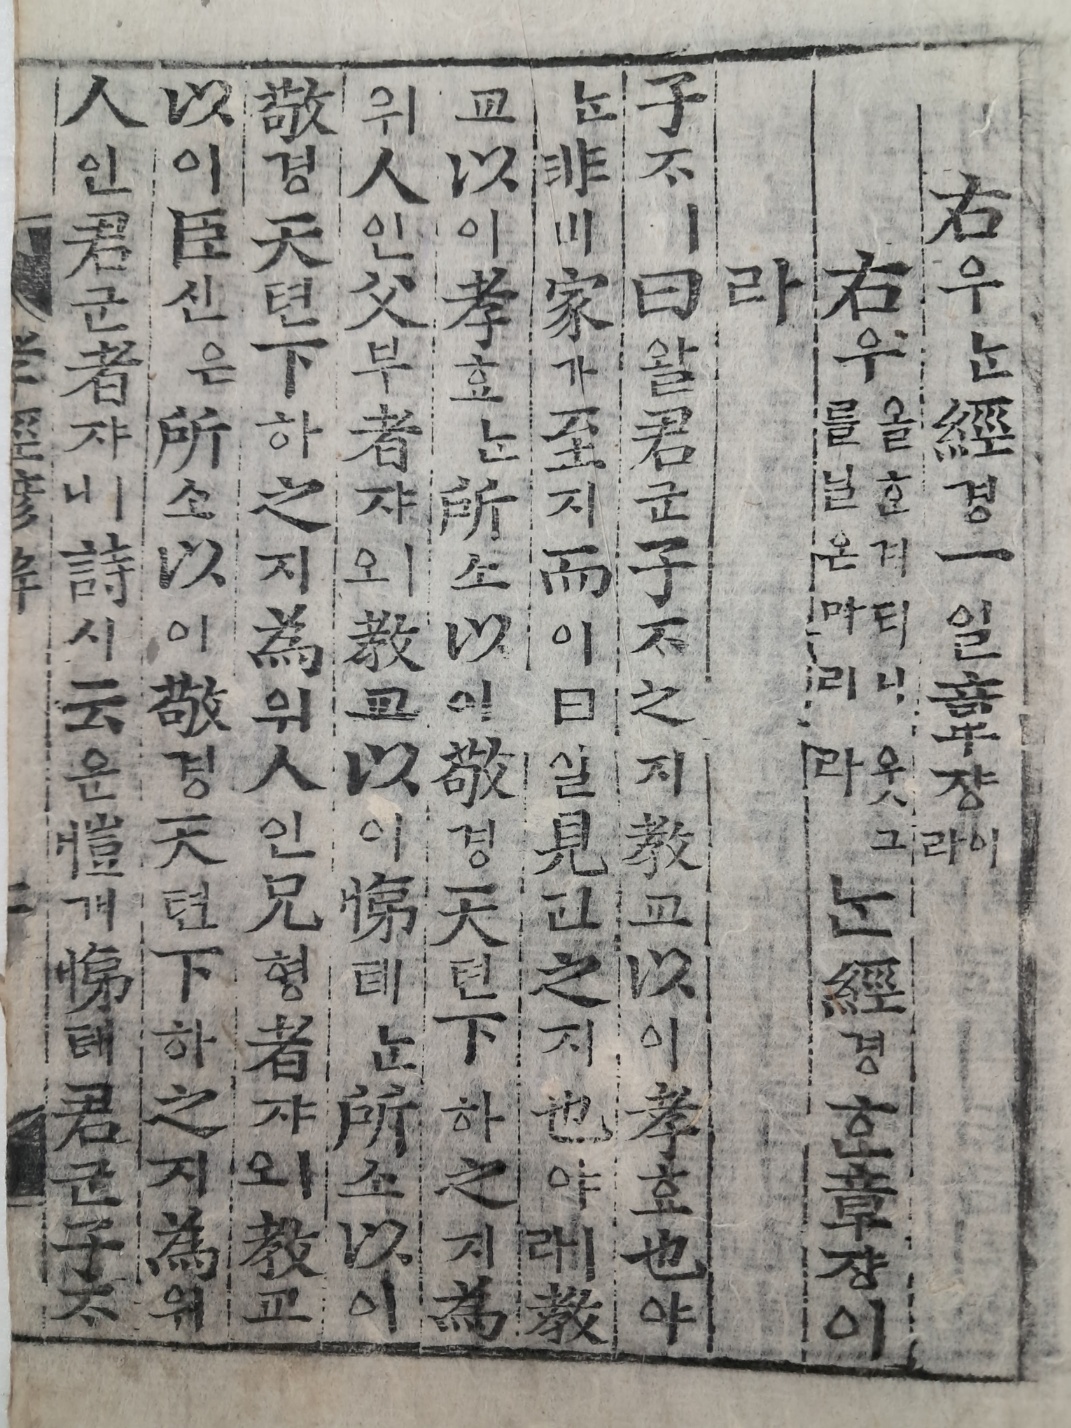 右우ᄂᆞᆫ經경一일章쟝이라
右우올ᄒᆞᆫ겨티니웃그를닐온마리라ᄂᆞᆫ經경ᄒᆞᆫ章쟝이
라
子ᄌᆞㅣ曰왈君군子ᄌᆞ之지教교以이孝효也야
ᄂᆞᆫ非비家가至지而이日일見견之지也야ㅣ래教
교以이孝효ᄂᆞᆫ所소以이敬경天텬下하之지為
위人인父부者쟈ㅣ오教교以이悌뎨ᄂᆞᆫ所소以이
敬경天텬下하之지為위人인兄형者쟈ㅣ오教교
以이臣신은所소以이敬경天텬下하之지為위
人인君군者쟈ㅣ니詩시云운愷개悌뎨君군子ᄌᆞ
孝經諺解
二